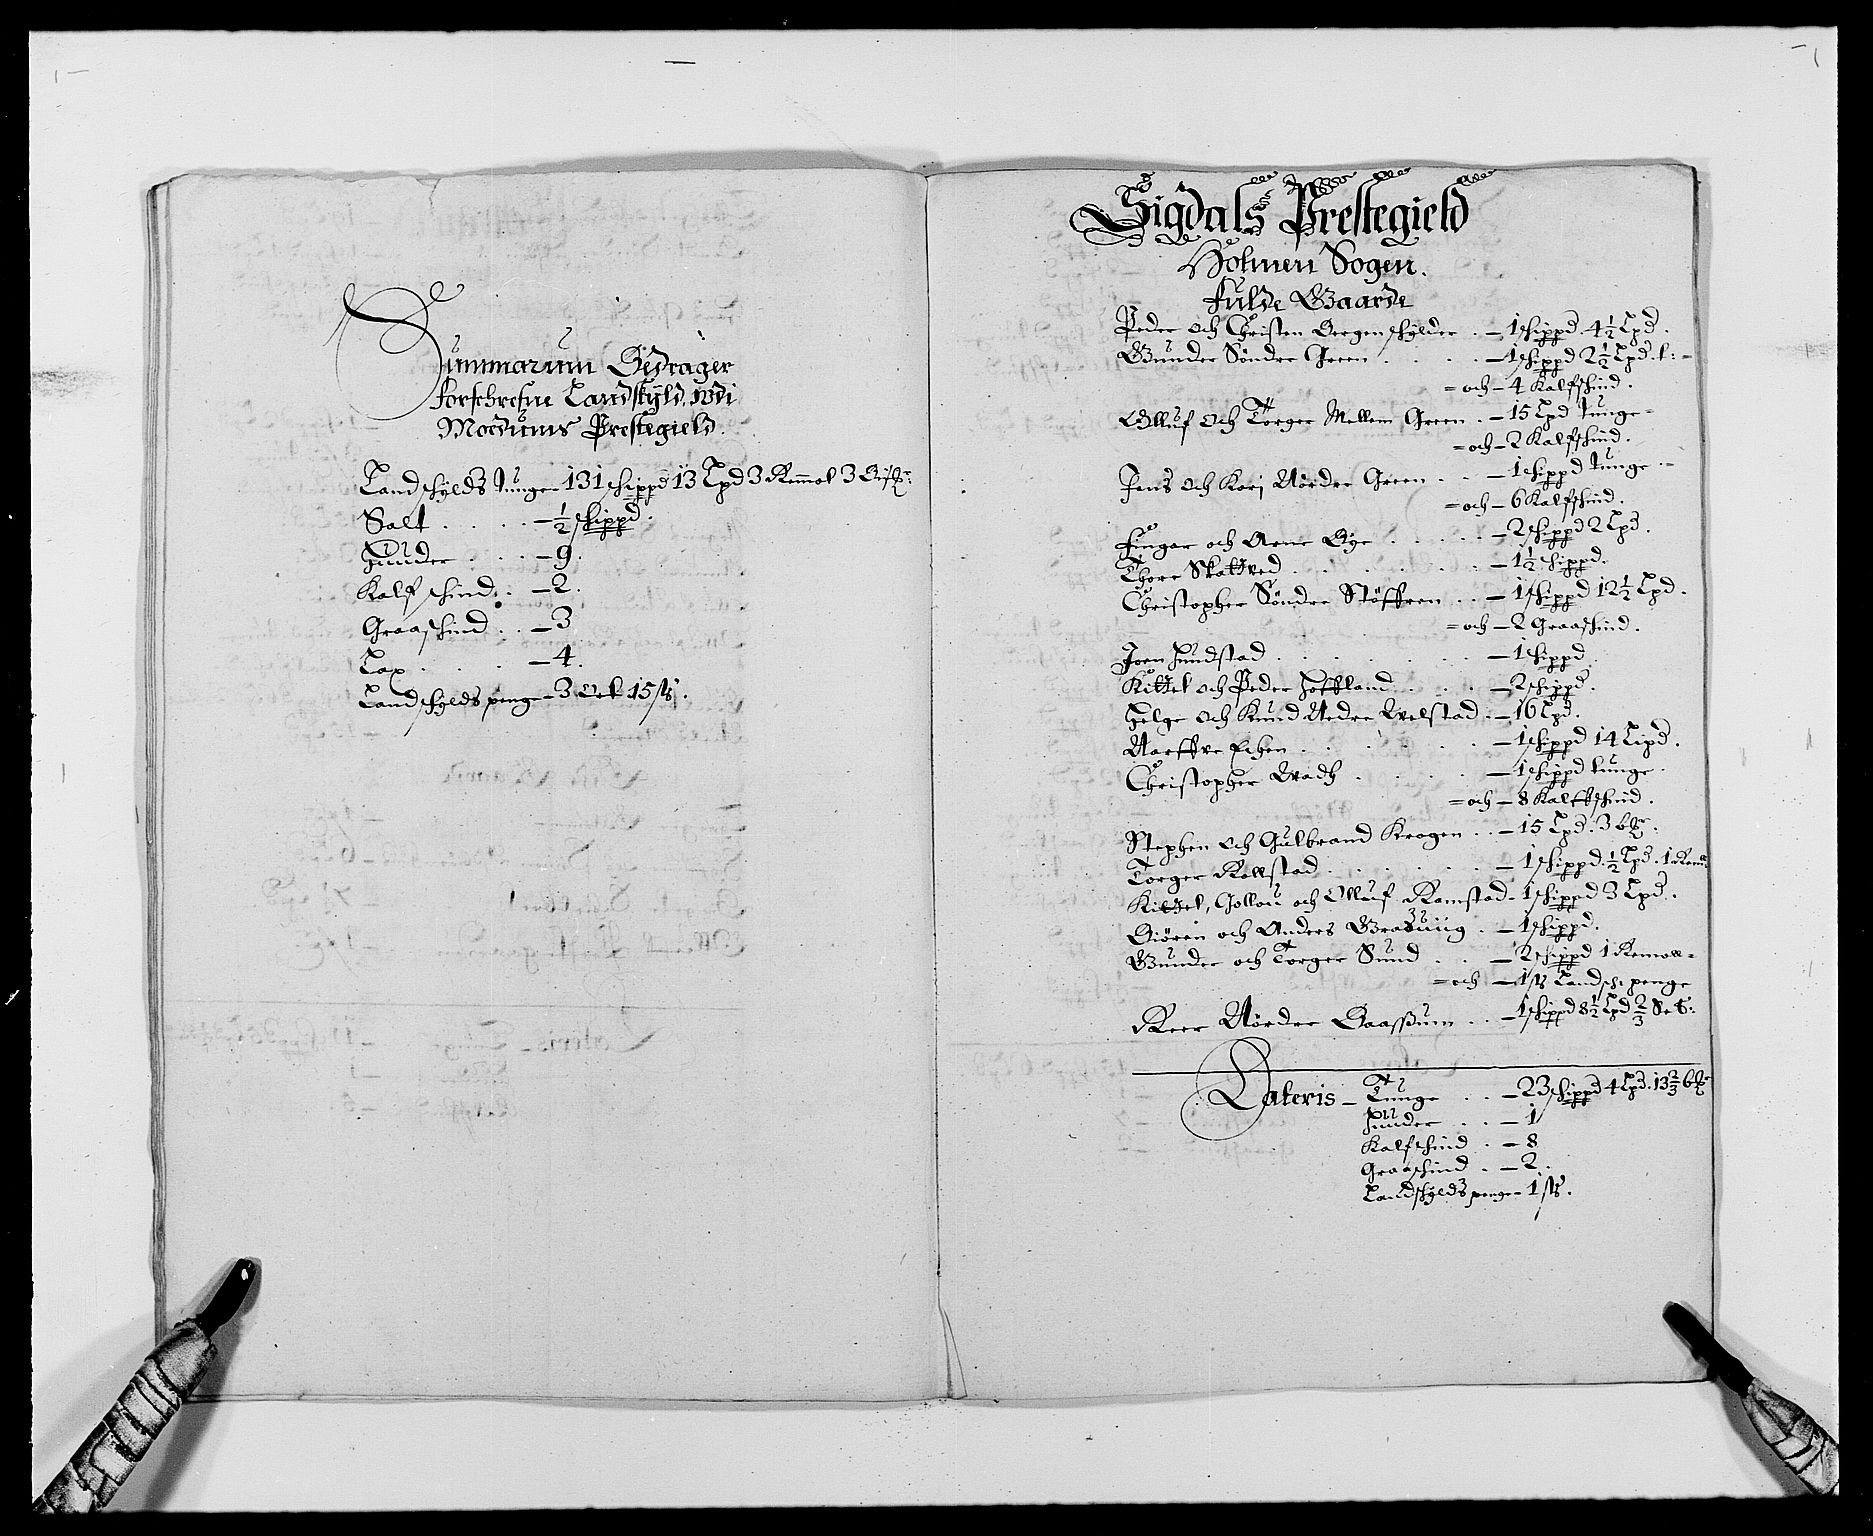 Summarum Bedrager
forschrefne Landskÿld, udi
Modums Prestegield.
Landschÿlds tunge 131 schippd 13 Lpd 3 Remol 3 Bis㎏:
Salt . . . . . – ½ schippd.
Huder . . . – 9.
Kalfschind . . – 2.
Graaschind . . – 3
Lax . . . . – 4.
Landschÿlds penge – 3 Ort 15 ss.
Sigdals Prestegield
Holmen Sogen.
fulde Gaarde
Peder och Christen Bergenschÿlder . – 1 schippd 4½ Lpd.
Gunder Søndre Green . . . . – 1 schippd 2½ Lpd. t: –
= och – 4 Kalfschind.
Olluf och Torger Mellem Green . – 15 Lpd tunge =
= och – 2 Kalfschind.
Jens och Kari Nørdre Green . . – 1 schippd tunge . –
= och – 6 Kalfschind.
Fingar och Arne Øye . . . . . – 2 schippd 2 Lpd.
Thore Skattved . . . . . . – 1½ schippd.
Christopher Søndre Støffren . . – 1 schippd 12½ Lpd.
= och – 2 Graaschind.
Joen Hundstad . . . . . . – 1 schippd
Kittel och Peder Hoffland . . . – 2 schippd.
Helge och Knud Nedre Velstad . – 16 Lpd.
Narffve Echen . . . . . . – 1 schippd 14 Lipd.
Christopher Wadh . . . . . – 1 schippd tunge .
= och – 8 Kalffschind.
Stephen och Gulbrand Kragen . . – 15 Lpd. 3 b㎏.
Torger Kollstad . . . . . . – 1 schippd. ½ Lpd. 1 Rem
Kittel, Gollou och Olluf Ramstad – 1 schippd 3 Lpd.
Siøren och Anders . – 1 schippd.
Gunder och Torger Sund . . – 2 schippd 1 Remoll =
= och – 1 ss Landsch penge
Reer Nørdre Baassum . . – 1 schippd 8½ Lpd ⅔ Set:
Lateris – Tunge . . – 23 schippd 4 Lpd. 13⅔ b㎏
Huder . . – 1
Kalfschind . – 8
Graaschind . – 2.
Landschÿlds penge – 1 ss.